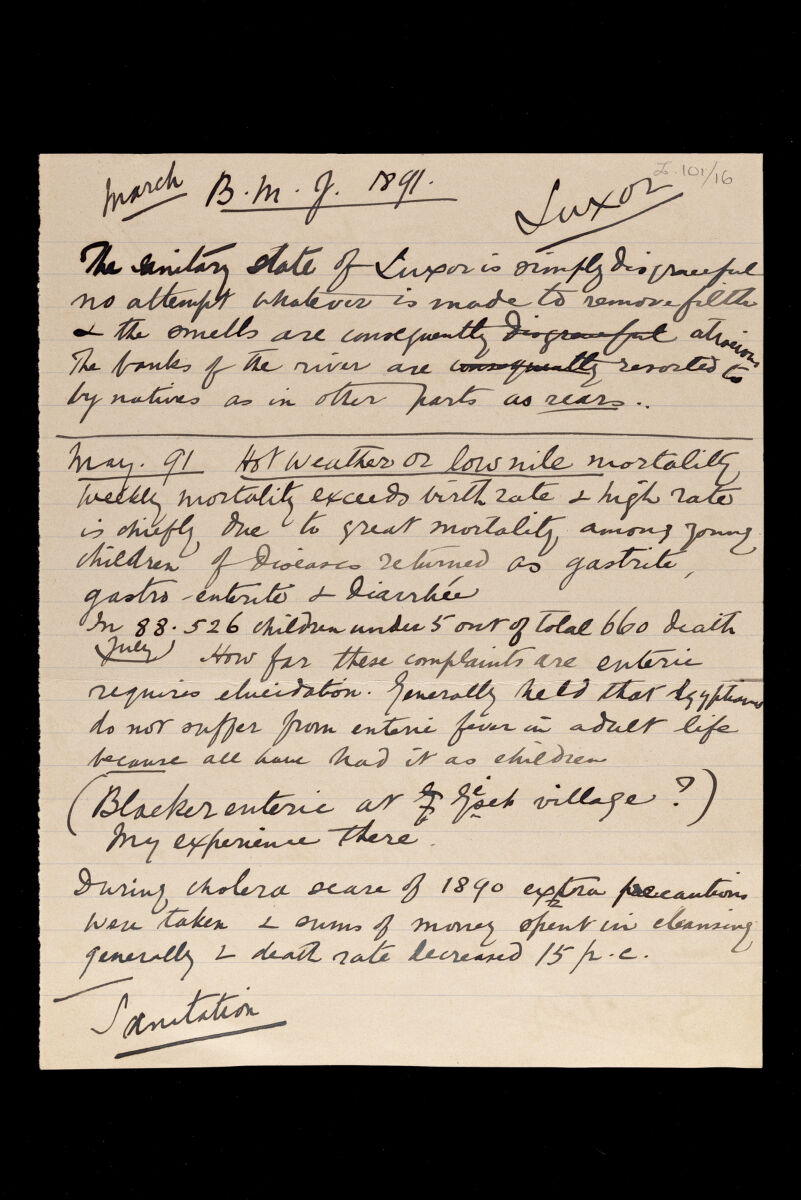 L.101/16
March B.M.J. 1891. Luxor
The sanitary state of Luxor is simply disgraceful
no attempt whatever is made to remove filth
& the smells are consequently disgraceful atrocious
The banks of the river are consequently resorted to
by natives as in other parts as rears..
May. 91 Hot Weather or low nile mortality
Weekly mortality exceeds birth rate & high rate
is chiefly due to great mortality among young
children of diseases returned as gastrite,
gastro-enterite & diarrhée
In 88. 526 children under 5 out of total 660 death
July How far these complaints are enteric
requires elucidation. Generally held that Egyptians
do not suffer from enteric fever in adult life
because all have had it as children
(Blacker enteric at village ?)
My experience there.
During cholera scare of 1890 extra precautions
were taken & sums of money spent in cleansing
generally & death rate decreased 15 p.c.
Sanitation